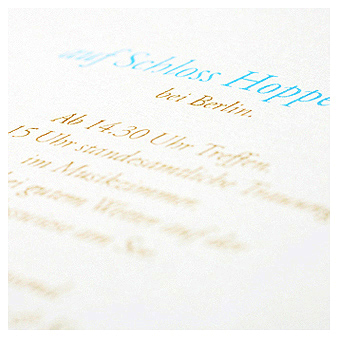 auf Schloss Hoppe
bei Berlin.
Ab 14.30 Uhr Treffen.
15 Uhr standesamtliche Trauung
im Musikzimmer.
gutem Wetter auf der
am See